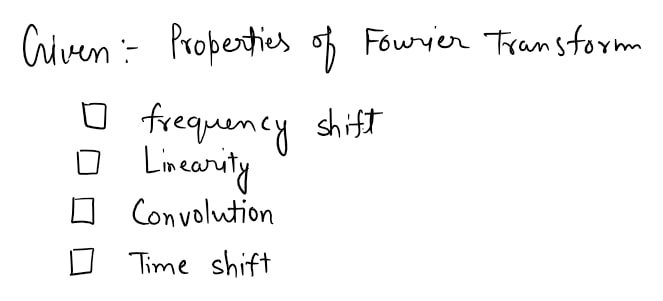 Given :- Properties of Fourier Transform
frequency shift
Linearity
Convolution
Time shift